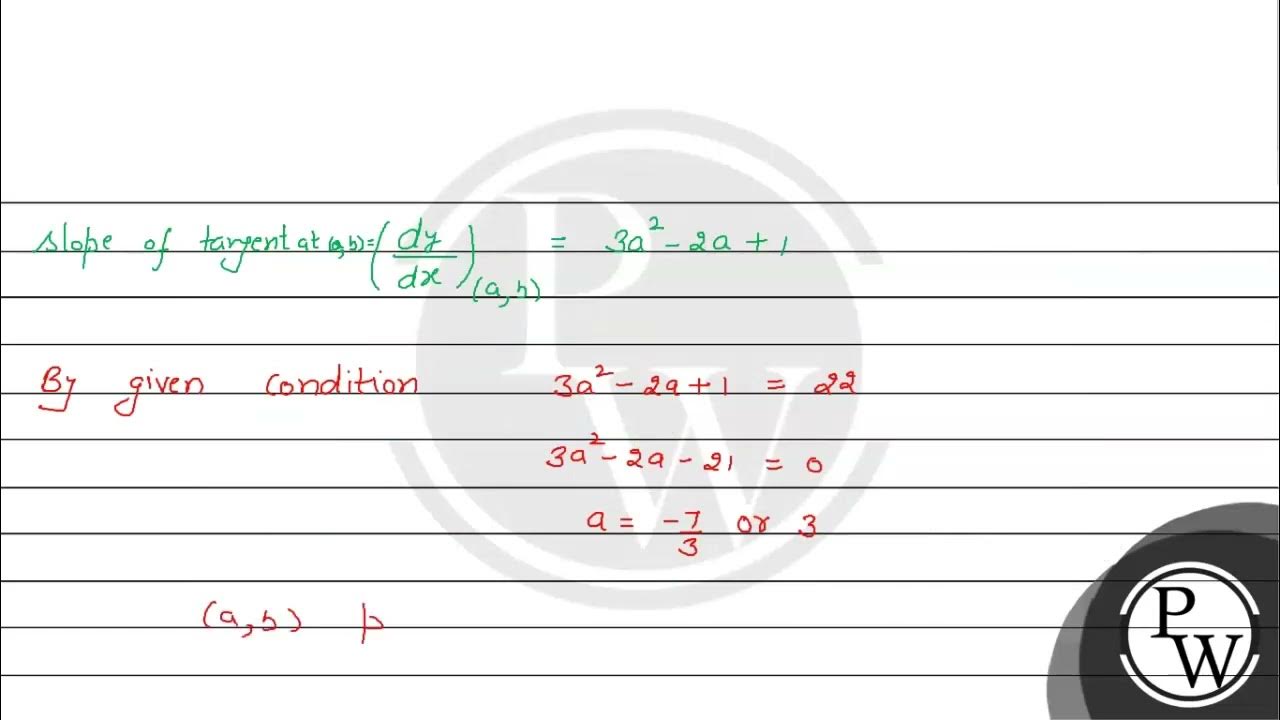 slope of tangent at (a, b) = (dy/dx)(a, b) = 3a² - 2a + 1
By given condition 3a² - 2a + 1 = 22
3a² - 2a - 21 = 0
a = -7/3 or 3
(a, b) p
PW
PW